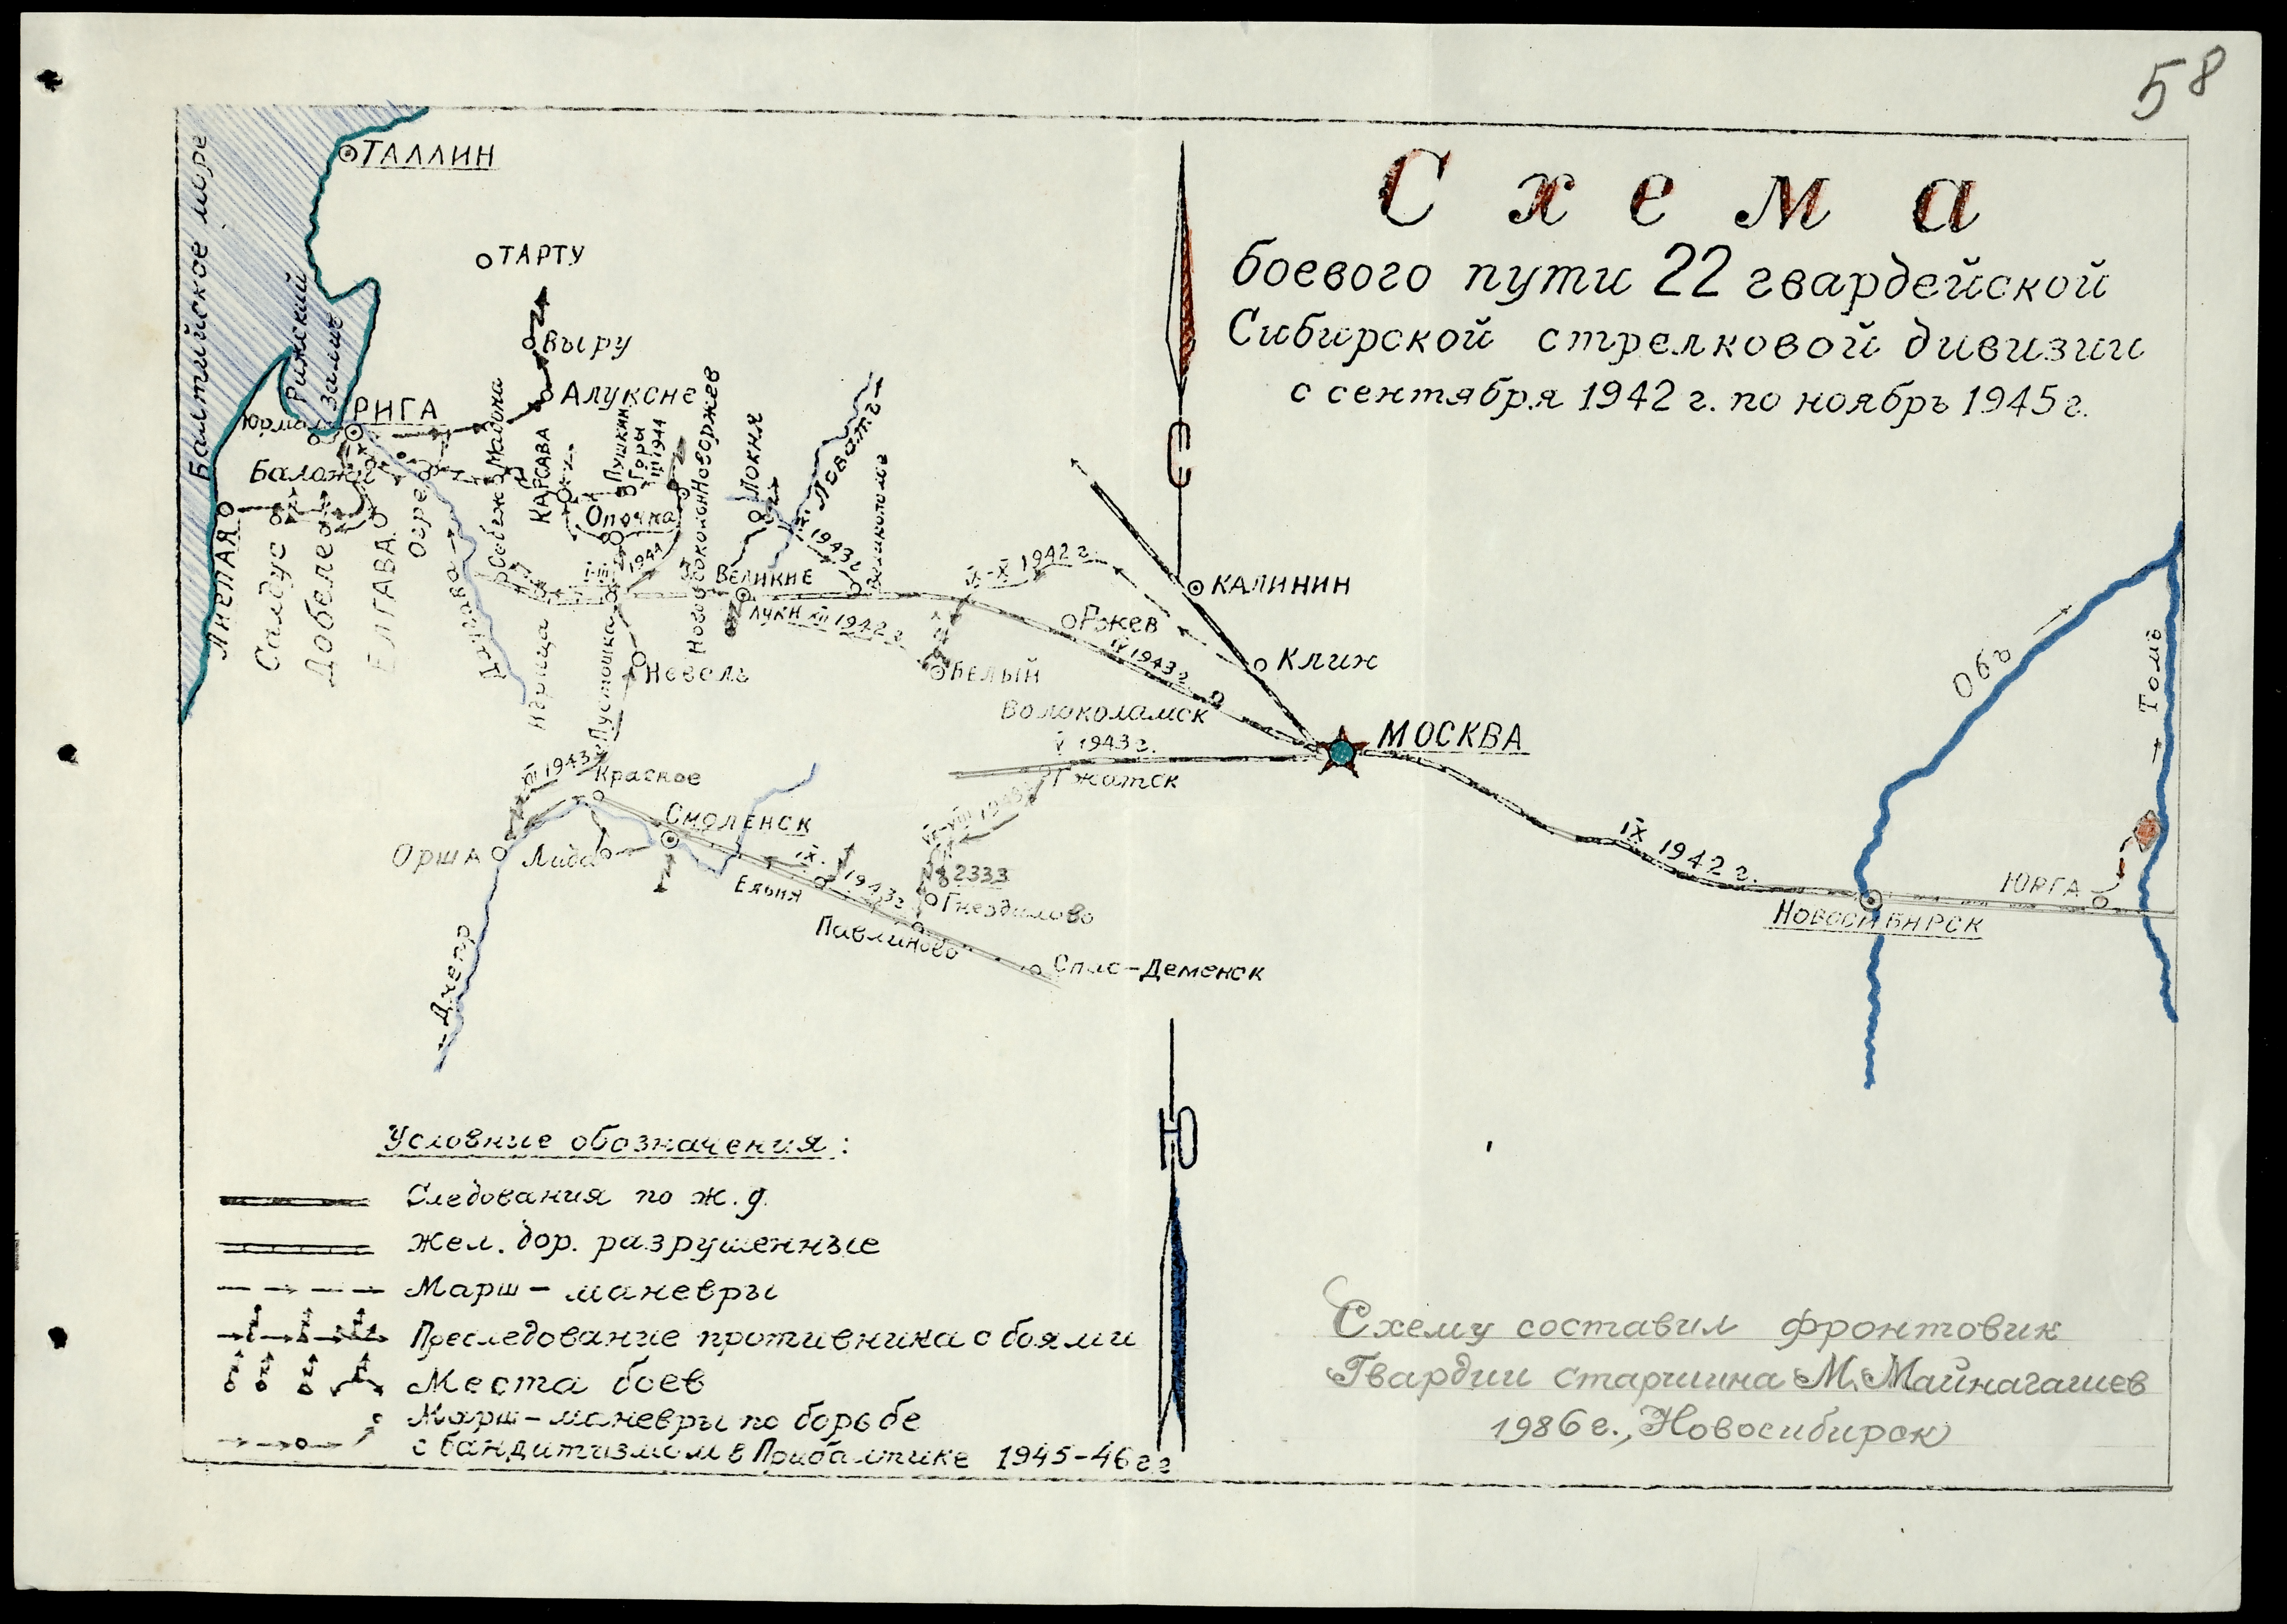 58
Схема
боевого пути 22 гвардейской
Сибирской стрелковой дивизии
с сентября 1942 г. по ноябрь 1945 г.
Балтийское море
ТАЛЛИН
ТАРТУ
Рижский
залив
Выру
Алуксне
РИГА
Баложи
Мадона
КАРСАВА
Пушкин.
Горы
III 1944
Новоржев
Локня
р. Ловать
1943 г.
Опочка
1944
I-III
ЛИЕПАЯ
Салдус
Добеле
ЕЛГАВА
Огре
Великие
Луки XII 1942 г.
IX-X 1942 г.
С
КАЛИНИН
Ржев
IV 1943 г.
Клин
БЕЛЫЙ
Невель
Пустошка
Волоколамск
V 1943 г.
Гжатск
МОСКВА
Обь
Томь
XII 1943
Красное
СМОЛЕНСК
ОРША
Лида
Ельня
IX. 1943 г.
VI-VIII 1943 г.
233,3
Гнездилово
Павлиново
Спас-Деменск
Днепр
IX 1942 г.
НОВОСИБИРСК
ЮРГА
Ю
Условние обозначения:
Следования по ж.д.
Жел. дор. разрушенные
Марш-маневры
Преследование противника с боями
Места боев
Марш-маневры по борьбе
с бандитизмом в Прибалтике 1945-46 г.г
Схему составил фронтовик
Гвардии старшина М. Майнагашев
1986 г., Новосибирск